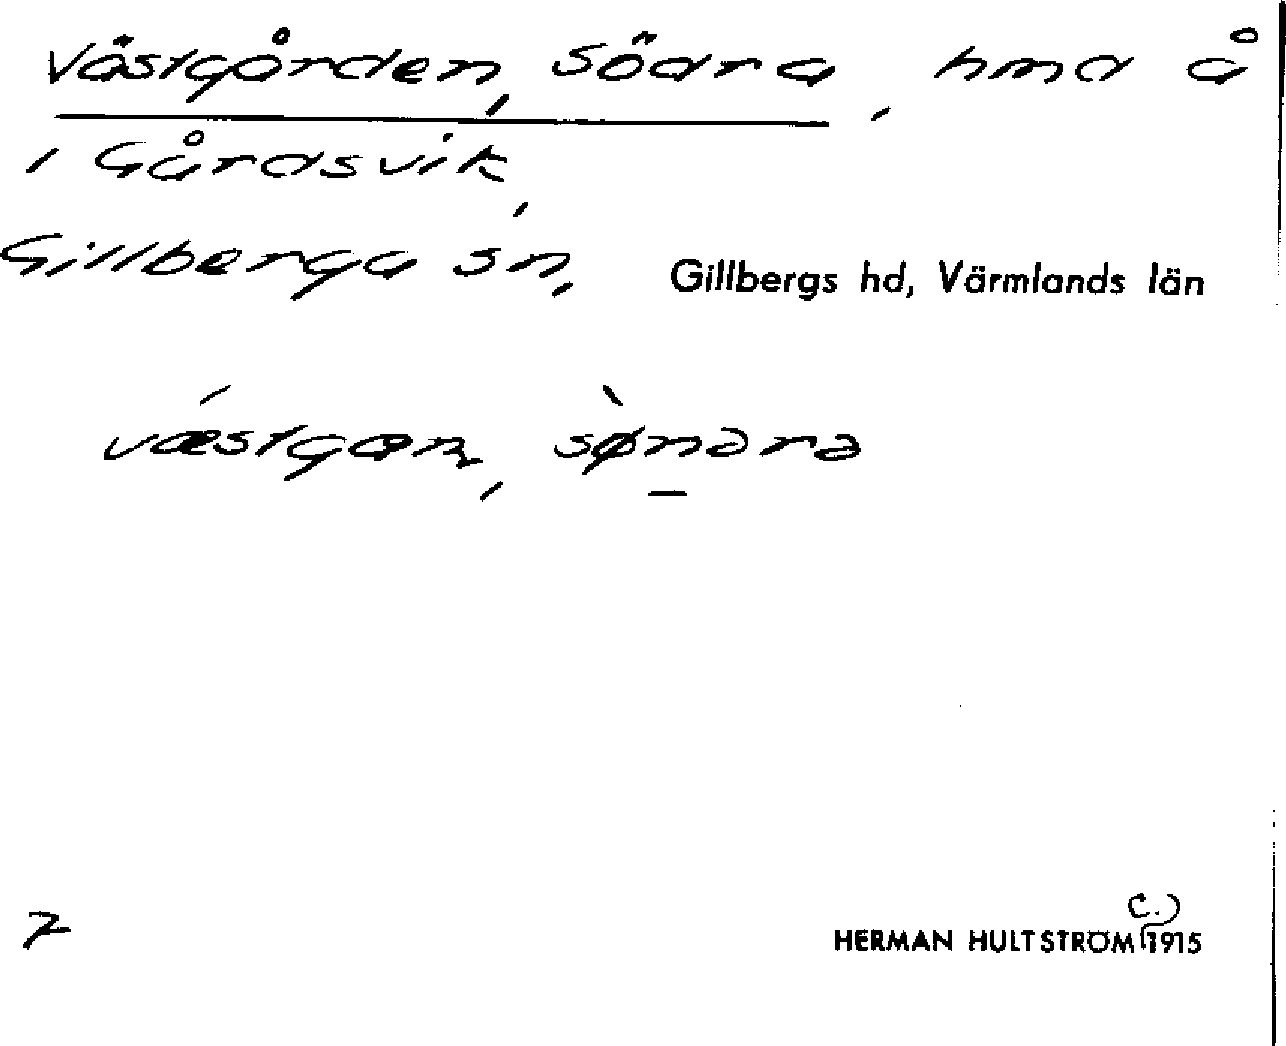 Västgården, Södra, hmd å
i Gårdsvik,
Gillberga sn, Gillbergs hd, Värmlands län
væstgaɳ, sønəra
7
C.)
HERMAN HULTSTRÖM 1915